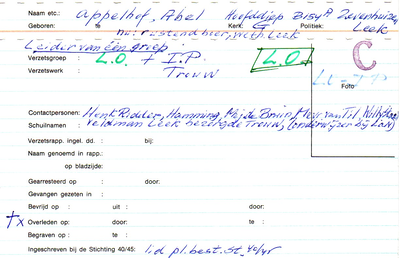 Naam etc.: Appelhof, Abel Hoofddiep B154A Zevenhuizen
Geboren: te Kerk: G Politiek: Leek
nu: rustend boer, with. Leek
Leider van een groep
Verzetsgroep : L.O. + I.P. L.O.
Verzetswerk : Trouw
C
Foto
Contactpersonen: Henk Ridder, Hamming, Mij de Bruin, Mevr van Til, Willy
Schuilnaam : Veldman Leek bezorgde Trouw, (onderwijzer bij
Verzetsrapp. ingel. dd. : bij:
Naam genoemd in rapp.:
op bladzijde:
Gearresteerd op : door:
Gevangen gezeten in :
Bevrijd op : uit : door:
Overleden op: door: te :
Begraven op : te :
Ingeschreven bij de Stichting 40/45: lid pl. best. St. 40/45